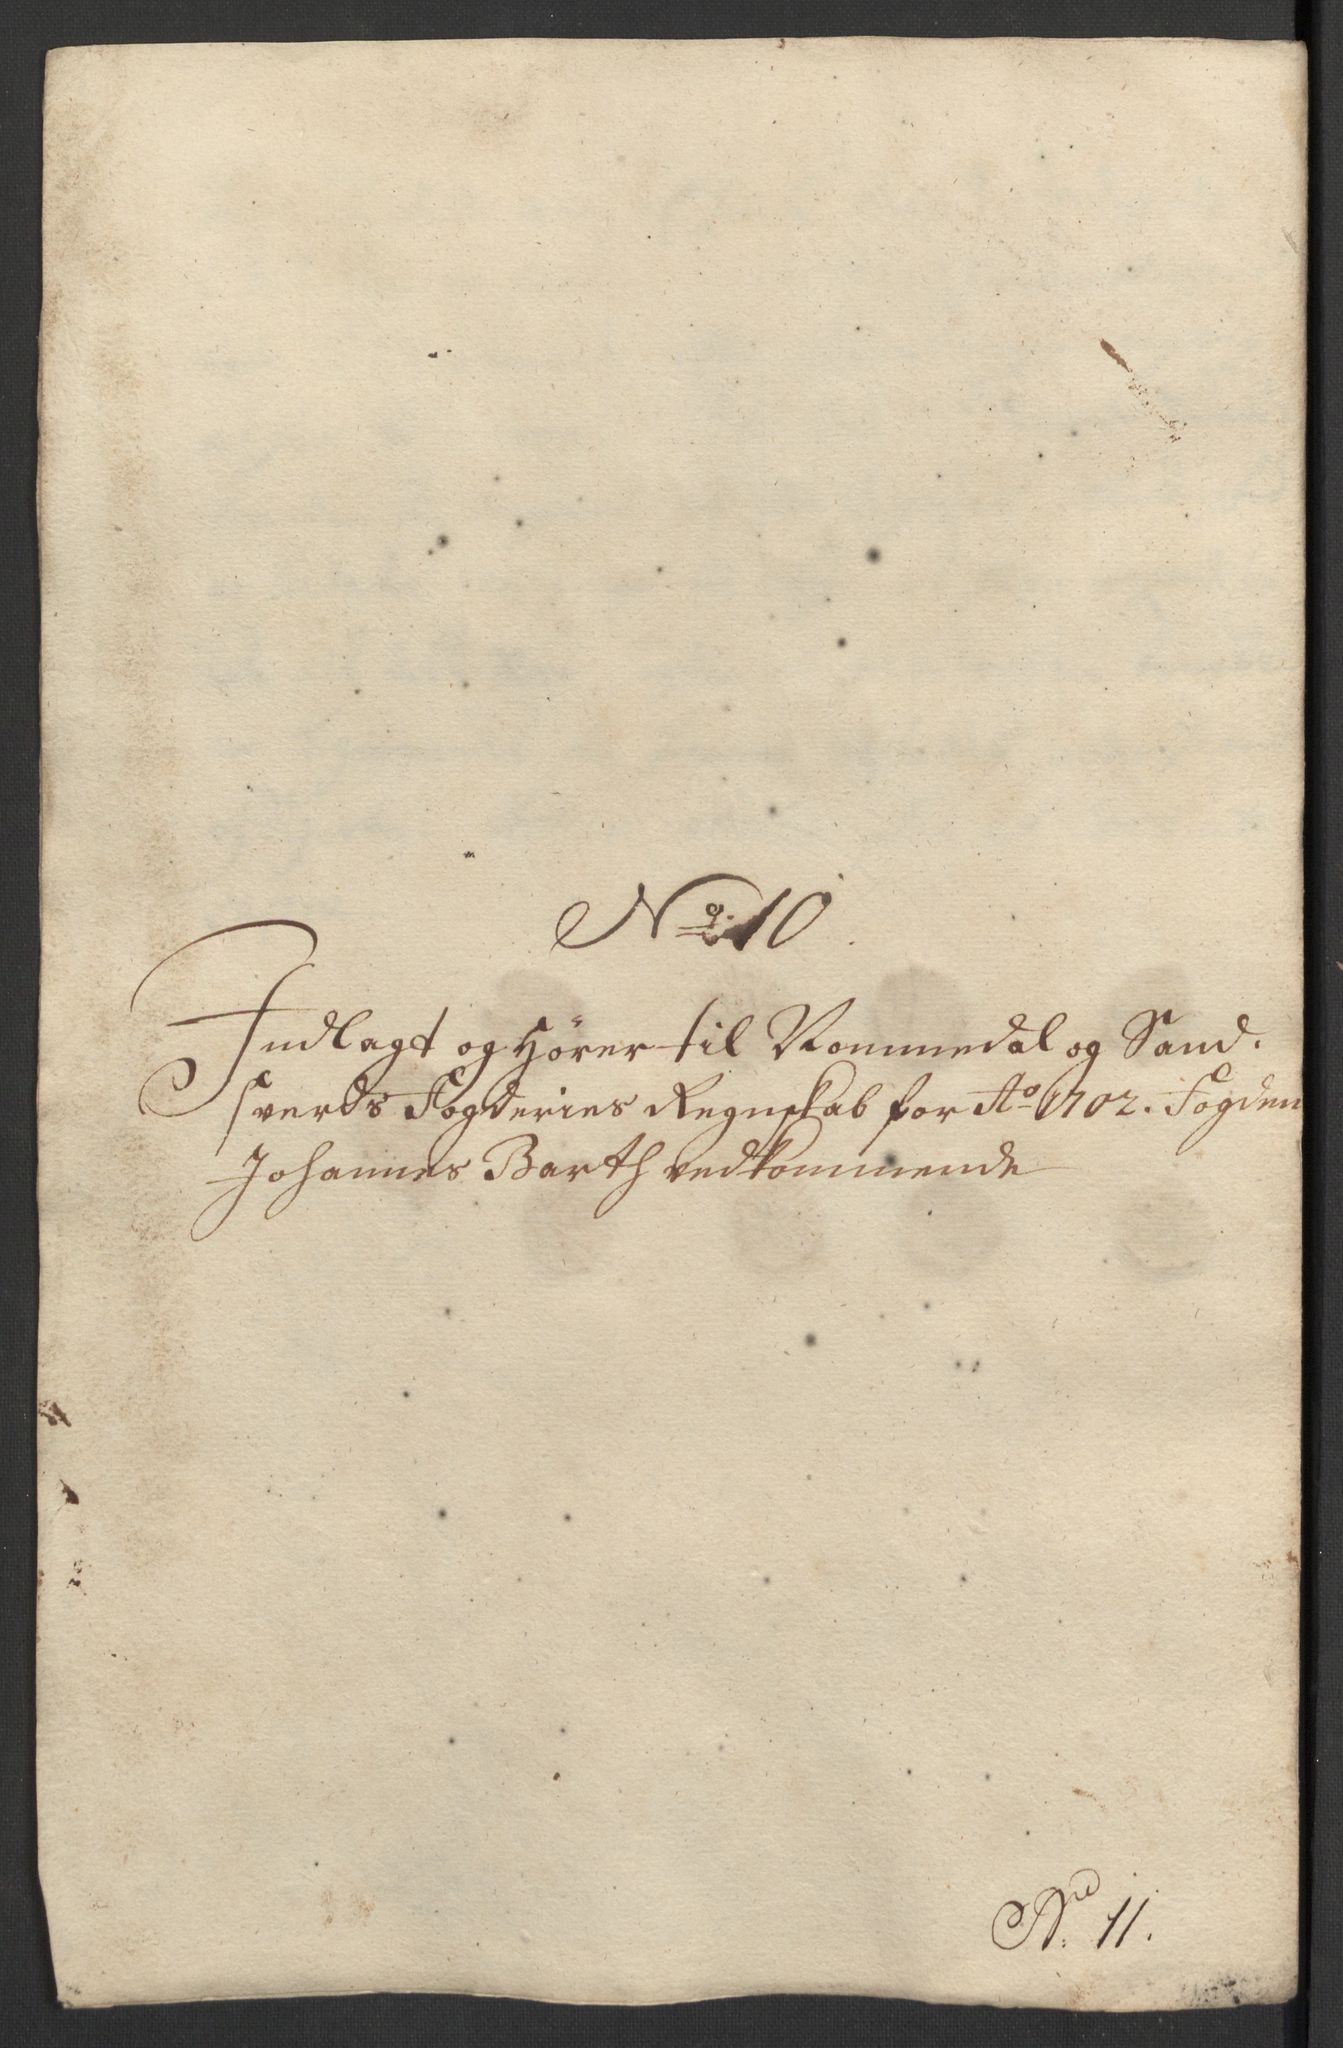 No. 10.
Indlagt og Hörer til Nommedal og Sand,
sverds Fogderies Regnskab for Ao 1702. Fogden
Johannes Barth vedkommende
No. 11.